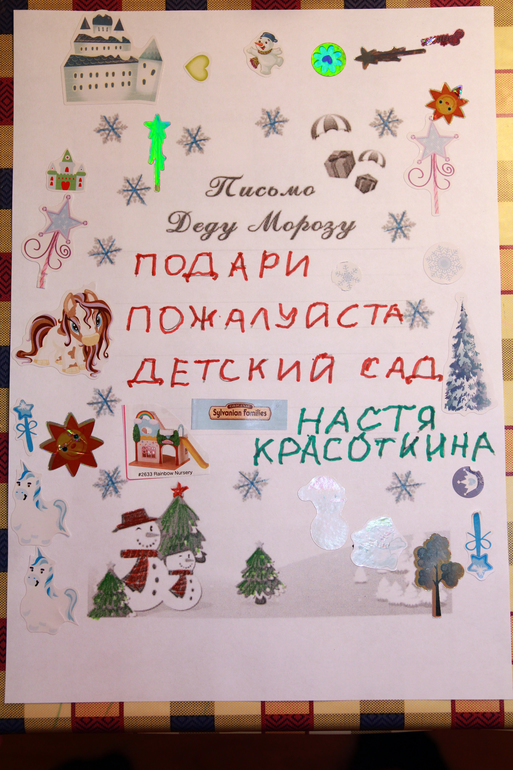 Письмо
Деду Морозу
ПОДАРИ
ПОЖАЛУЙСТА
ДЕТСКИЙ САД
Sylvanian Families
НАСТЯ
КРАСОТКИНА
#2633 Rainbow Nursery